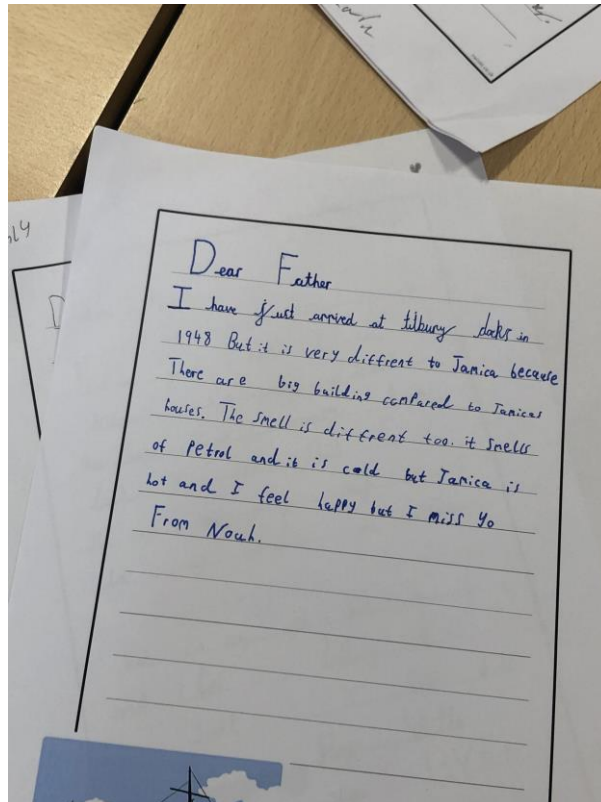 Dear Father
I have just arrived at tilbury docks in
1948 But it is very diffrent to Jamica because
There are big building compared to Jamicas
houses. The smell is diffrent too. it smells
of Petrol and it is cold but Jamica is
hot and I feel happy but I miss yo
From Noah.